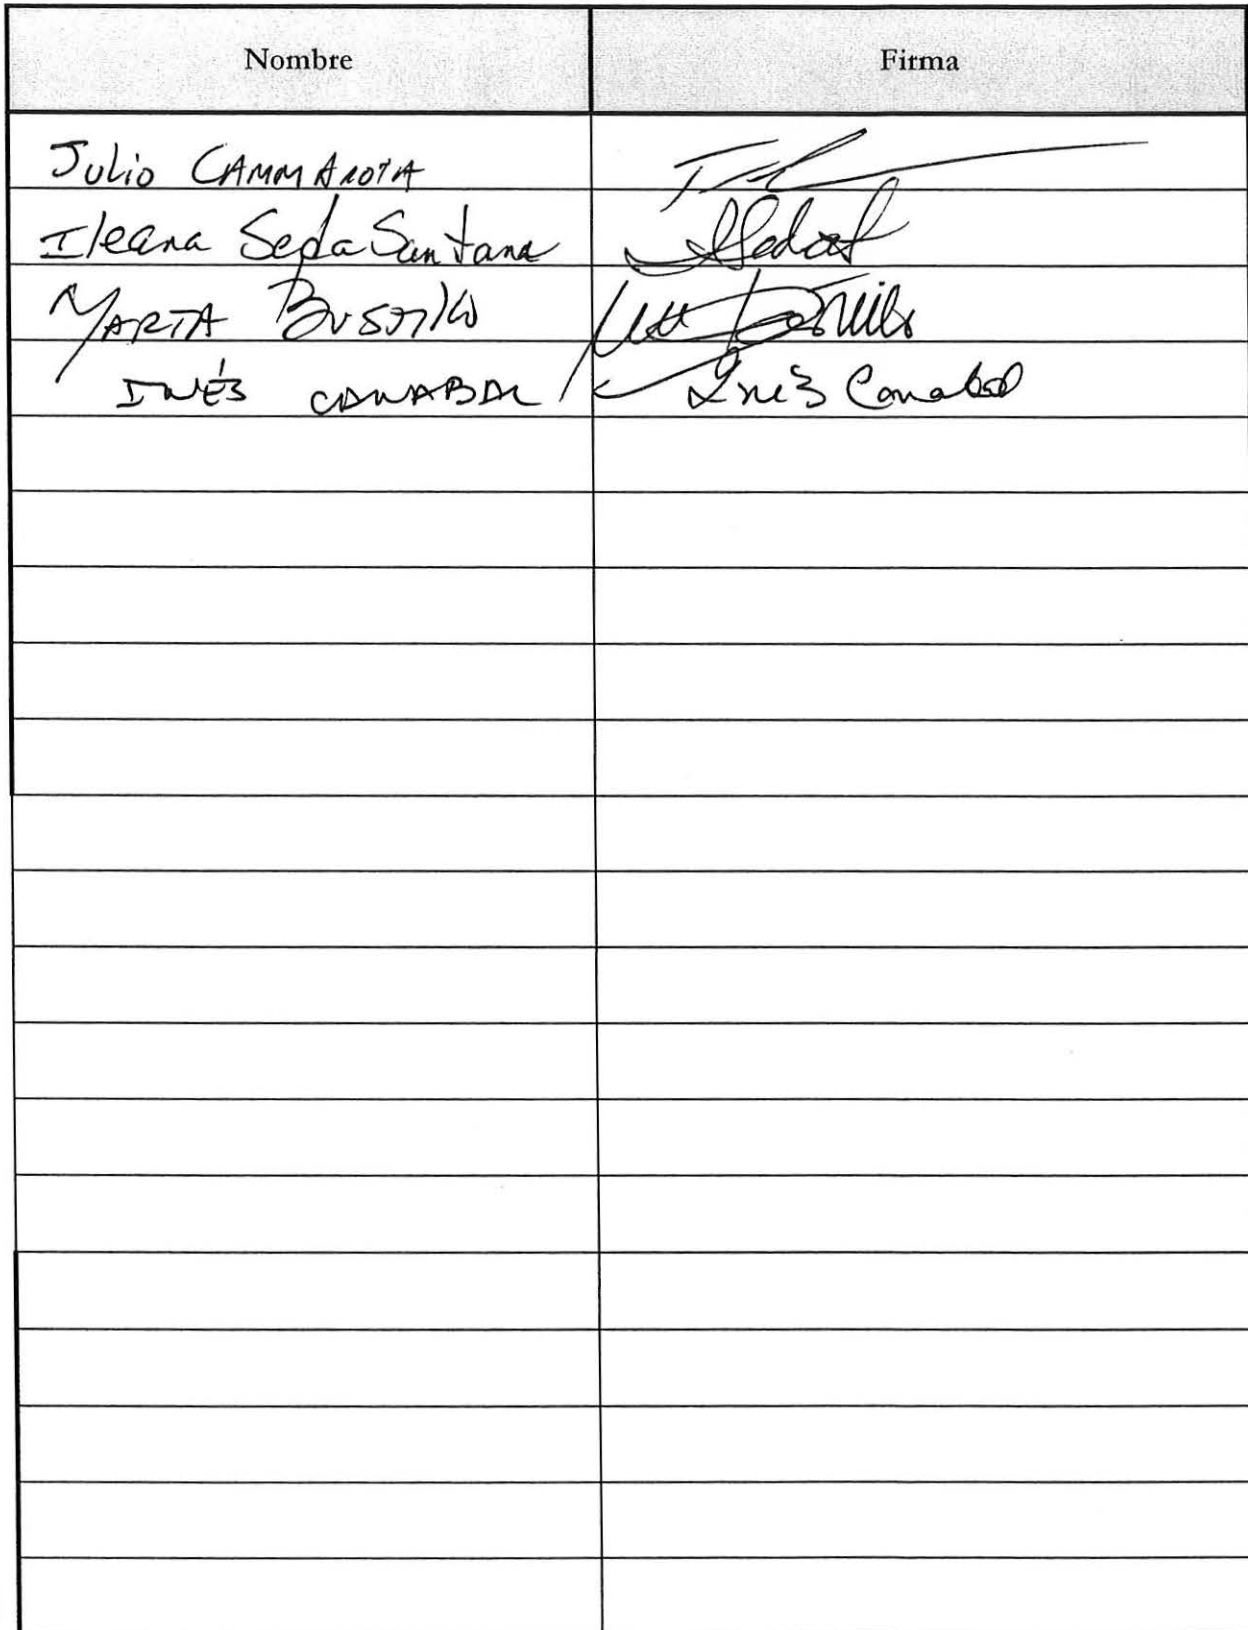 Nombre Firma
Julio CAMMAROTA
Ileana Seda Santana
MARTA BUSTILLO
INÉS CANABAL Inés Canabal